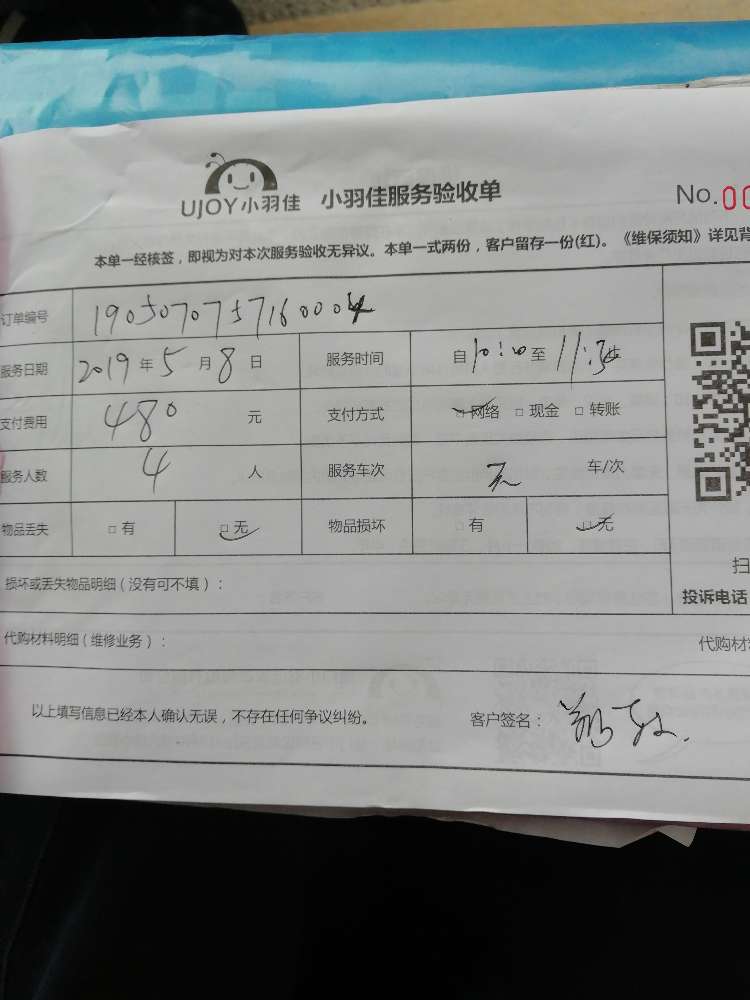 UJOY小羽佳 小羽佳服务验收单 No.00
本单一经核签，即视为对本次服务验收无异议。本单一式两份，客户留存一份(红)。《维保须知》详见背
订单编号 190507075716000
服务日期 2019年5月8日 服务时间 自10:00至11:
支付费用 480 元 支付方式 网络 现金 转账
服务人数 4 人 服务车次 车/次
物品丢失 有 无 物品损坏 有 无
扫
损坏或丢失物品明细（没有可不填）： 投诉电话
代购材料明细（维修业务）： 代购材
以上填写信息已经本人确认无误，不存在任何争议纠纷。 客户签名：